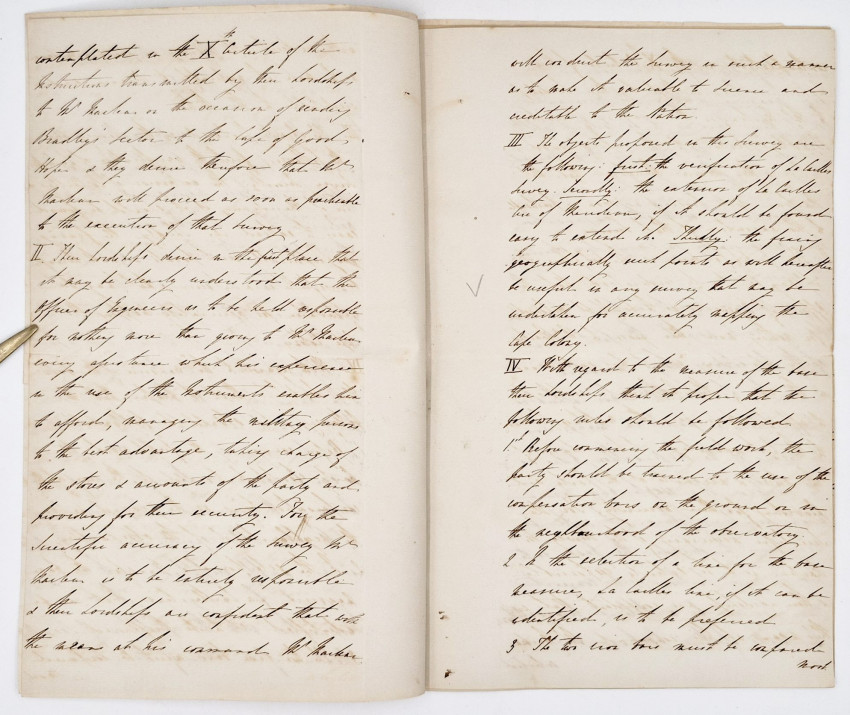 contemplated in the Xth Article of the
Instructions transmitted by their Lordships
to Mr Maclear on the occasion of sending
Bradley's Sector to the Cape of Good
Hope & they desire therefore that Mr
Maclear will proceed as soon as practicable
to the execution of that Survey
II. Their Lordships desire in the first place that
it may be clearly understood that the
Officer of Engineers is to be held responsible
for nothing more than giving to Mr Maclear
every assistance which his experience
in the use of the Instruments enables him
to afford, managing the military persons
to the best advantage, taking charge of
the stores & accounts of the party and
providing for their security. For the
Scientific accuracy of the Survey Mr
Maclear is to be entirely responsible
& their Lordships are confident that with
the means at his command Mr Maclear
will conduct the Survey in such a manner
as to make it valuable to Science and
creditable to the Nation.
III The objects proposed in this Survey are
the following: first: the verification of La Cailles
Survey. Secondly: the extension of La Cailles
Arc of Meridian, if it should be found
easy to extend it. Thirdly: the fixing
geographically such points as will hereafter
be useful in any survey that may be
undertaken for accurately mapping the
Cape Colony.
IV With regard to the measure of the base
their Lordships think it proper that the
following rules should be followed
1st Before commencing the field work, the
party should be trained to the use of the
compensation bars on the ground or in
the neighbourhood of the observatory.
2 In the selection of a line for the base
measure, La Cailles line, if it can be
identified, is to be preferred
3 The two iron bars must be compared
most